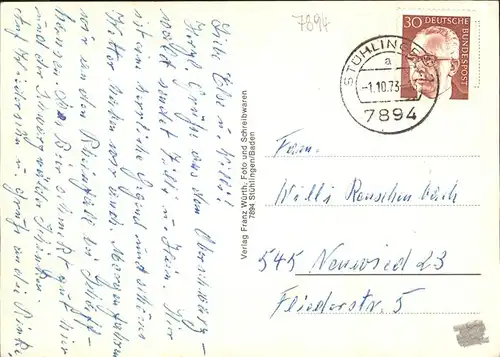 7894
30 DEUTSCHE
BUNDESPOST
STÜHLINGEN
a
-1.10.73-
7894
Liebe Else u. Willi!
Herzl. Grüße aus dem
sendet Heidi u. Hier
ist eine herrliche Gegend und schönes
Wetter haben wir auch. Morgen fahren
wir an den Rheinfall bei Schaff-
hausen. Das Bier schmeckt gut hier
und der
Auf Wiedersehn u. Gruß an die
Verlag Franz Würth, Foto und Schreibwaren
7894 Stühlingen/Baden
Fam.
Willi Reuschenbach
545 Neuwied 23
Fliederstr. 5